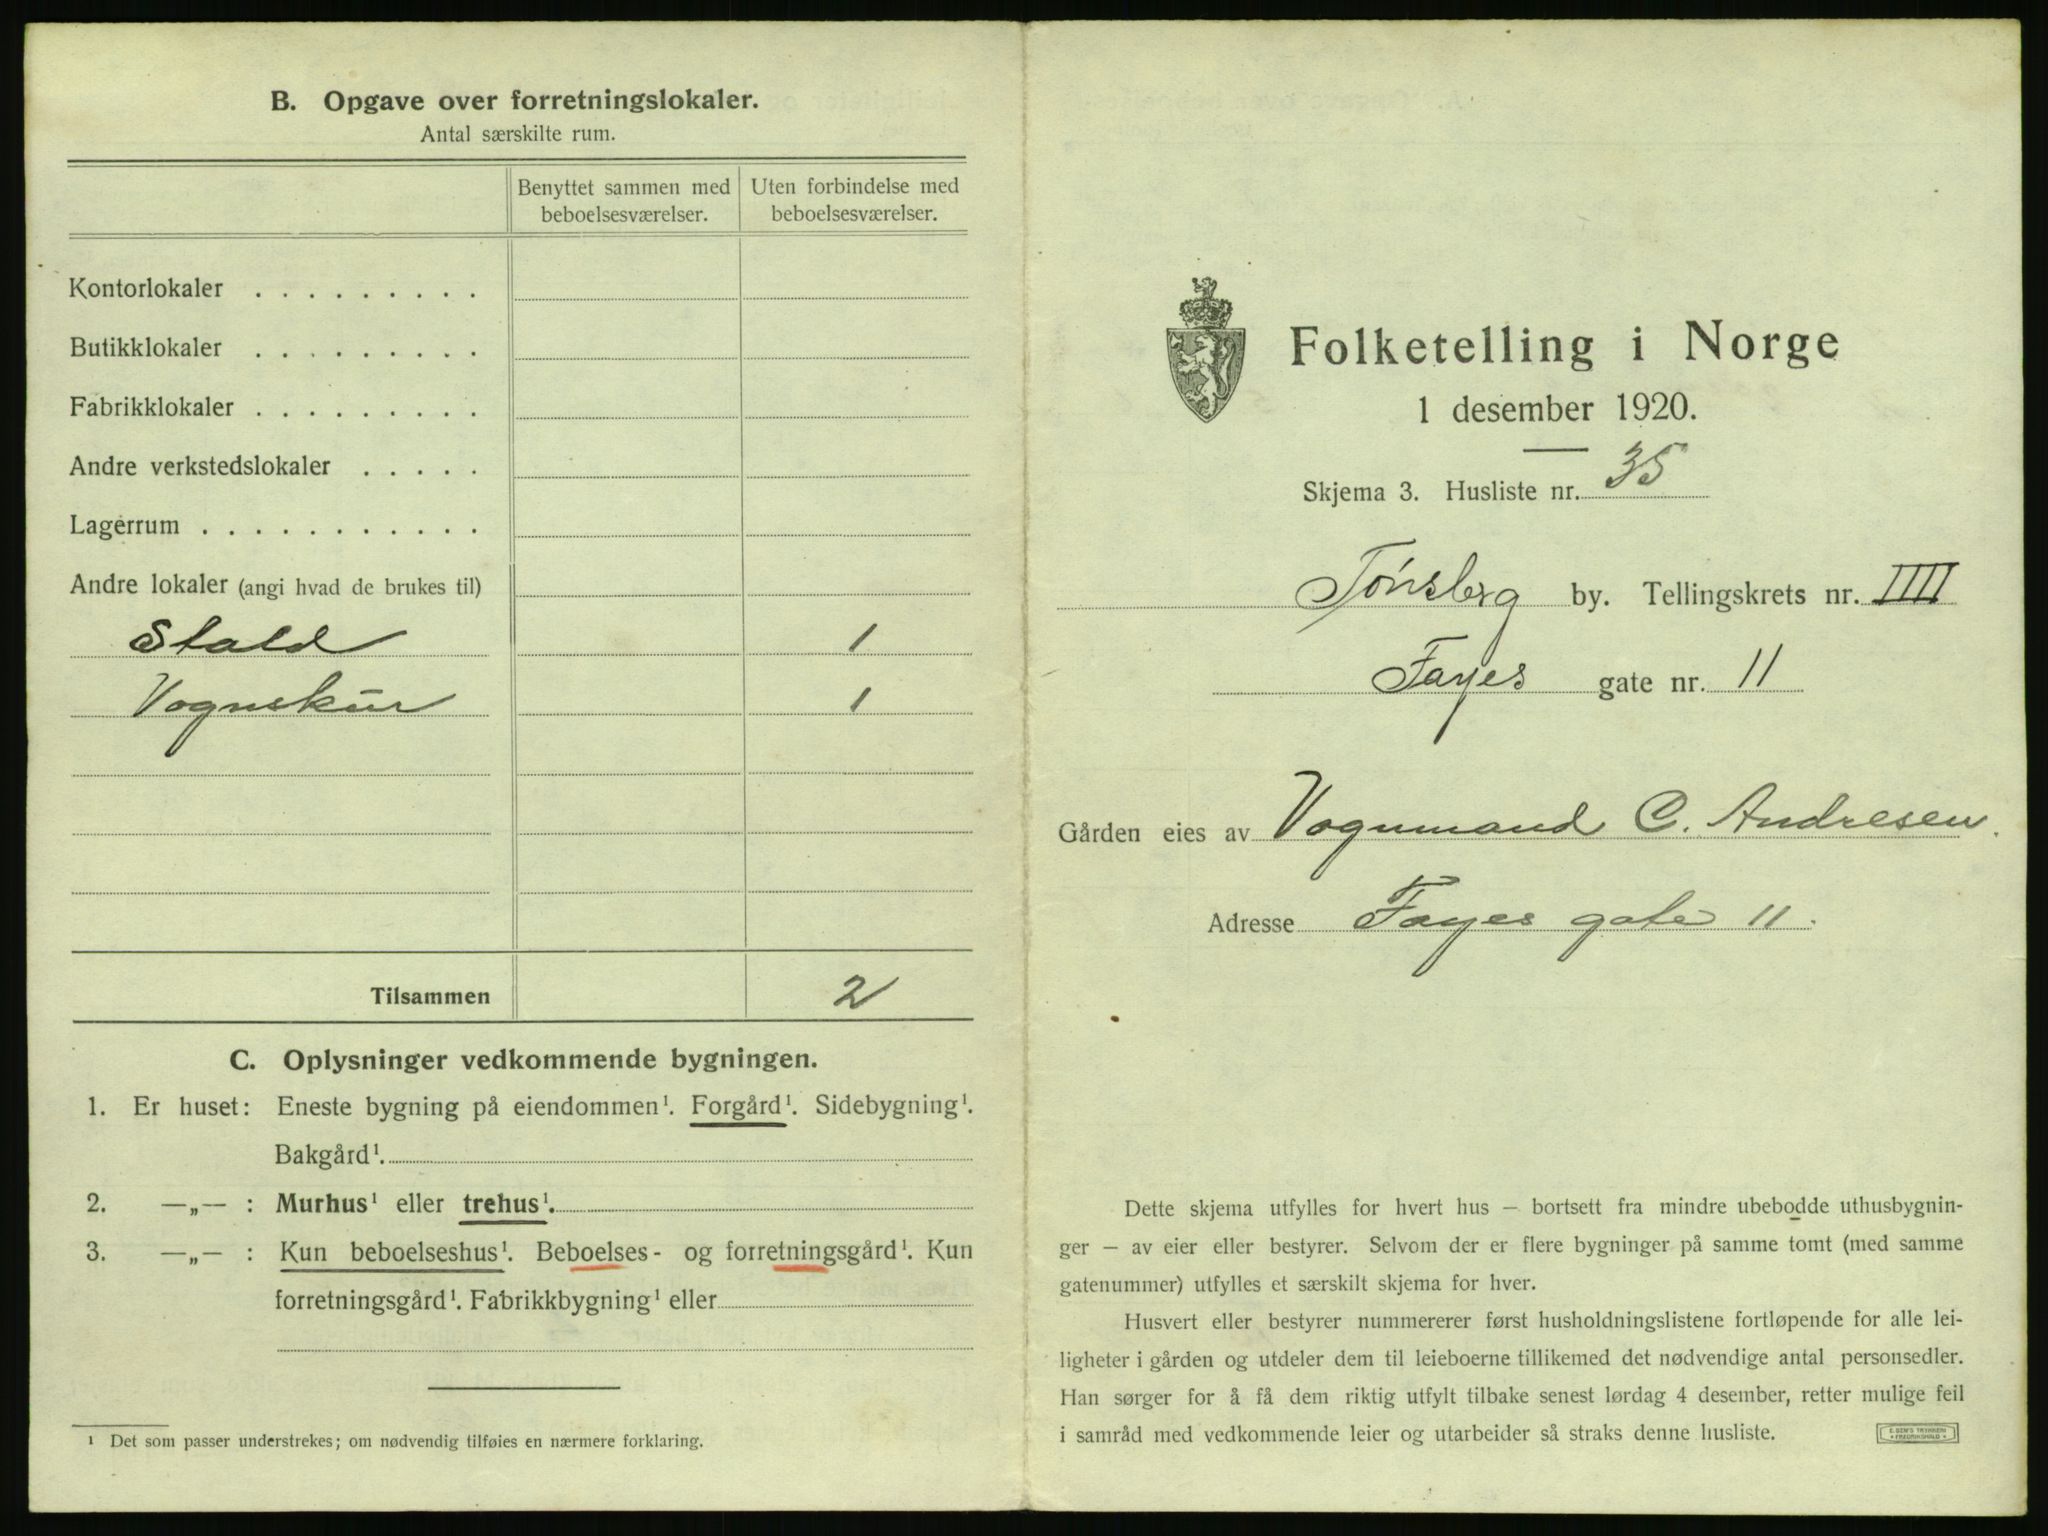 B. Opgave over forretningslokaler.
Antal særskilte rum.
Benyttet sammen med beboelsesværelser.
Uten forbindelse med beboelsesværelser.
Kontorlokaler . . . . . . . . .
Butikklokaler . . . . . . . . .
Fabrikklokaler . . . . . . . . .
Andre verkstedslokaler . . . . .
Lagerrum . . . . . . . . . . .
Andre lokaler (angi hvad de brukes til)
Stald 1
Vognskur 1
Tilsammen 2
C. Oplysninger vedkommende bygningen.
1. Er huset: Eneste bygning på eiendommen¹. Forgård¹. Sidebygning¹.
Bakgård¹.
2. —„— : Murhus¹ eller trehus¹.
3. —„— : Kun beboelseshus¹. Beboelses- og forretningsgård¹. Kun
forretningsgård¹. Fabrikkbygning¹ eller
¹ Det som passer understrekes; om nødvendig tilføies en nærmere forklaring.
Folketelling i Norge
1 desember 1920.
Skjema 3. Husliste nr. 35
Tønsberg by. Tellingskrets nr. IIII
Fayes gate nr. 11
Gården eies av Vognmand C. Andresen.
Adresse Fayes gate 11.
Dette skjema utfylles for hvert hus — bortsett fra mindre ubebodde uthusbygnin-
ger — av eier eller bestyrer. Selvom der er flere bygninger på samme tomt (med samme
gatenummer) utfylles et særskilt skjema for hver.
Husvert eller bestyrer nummererer først husholdningslistene fortløpende for alle lei-
ligheter i gården og utdeler dem til leieboerne tillikemed det nødvendige antal personsedler.
Han sørger for å få dem riktig utfylt tilbake senest lørdag 4 desember, retter mulige feil
i samråd med vedkommende leier og utarbeider så straks denne husliste.
E. SEM'S TRYKKERI
FREDRIKSHALD